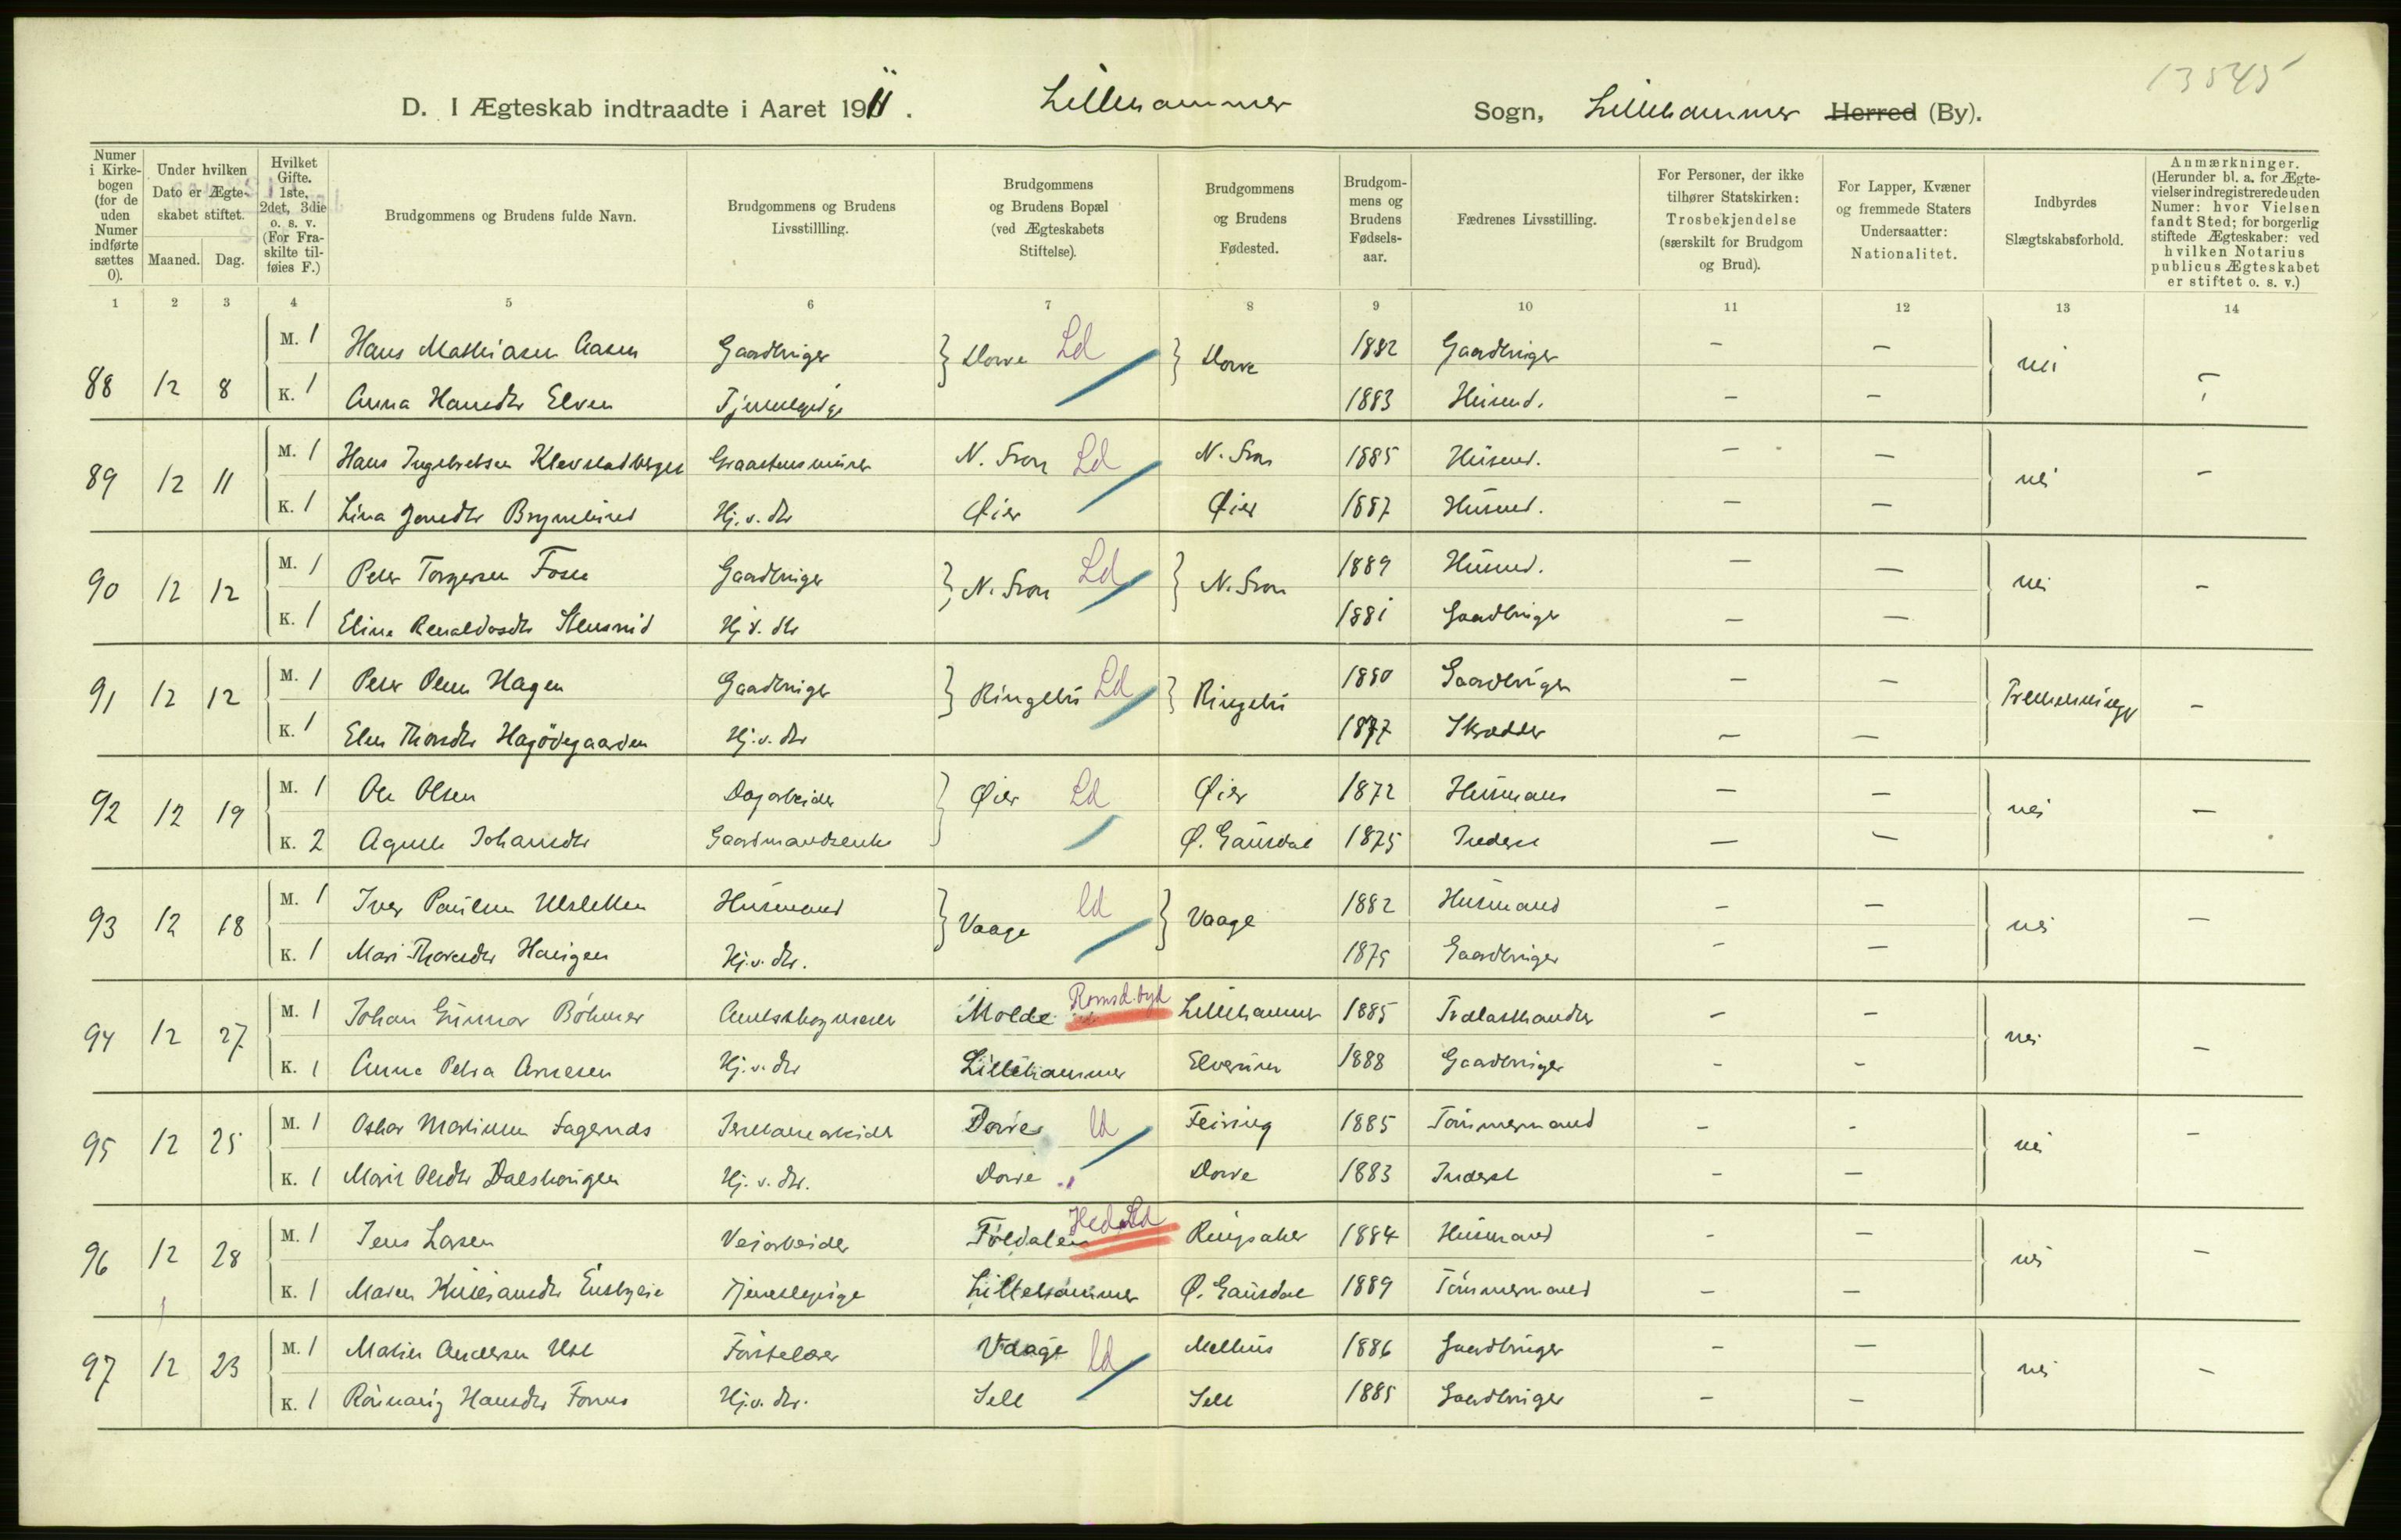 13545
D. I Ægteskab indtraadte i Aaret 1911. Lillehammer Sogn, Lillehammer Herred (By).
Numer i Kirkebogen (for de uden Numer indførte sættes 0).
Under hvilken Dato er Ægteskabet stiftet.
Maaned. Dag.
Hvilket Gifte. 1ste, 2det, 3die o. s. v. (For Fraskilte tilføies F.)
Brudgommens og Brudens fulde Navn.
Brudgommens og Brudens Livsstillling.
Brudgommens og Brudens Bopæl (ved Ægteskabets Stiftelse).
Brudgommens og Brudens Fødested.
Brudgommens og Brudens Fødselsaar.
Fædrenes Livsstilling.
For Personer, der ikke tilhører Statskirken: Trosbekjendelse (særskilt for Brudgom og Brud).
For Lapper, Kvæner og fremmede Staters Undersaatter: Nationalitet.
Indbyrdes Slægtskabsforhold.
Anmærkninger. (Herunder bl. a. for Ægtevielser indregistrerede uden Numer: hvor Vielsen fandt Sted; for borgerlig stiftede Ægteskaber: ved hvilken Notarius publicus Ægteskabet er stiftet o. s. v.)
1 2 3 4 5 6 7 8 9 10 11 12 13 14
88 12 8 M. 1 Hans Mathiasen Aasen Gaardbruger Dovre Ld Dovre 1882 Gaardbruger - - nei -
K. 1 Anna Hansdtr Elven Tjenestepige 1883 Husmd. - -
89 12 11 M. 1 Hans Ingebretsen Klevstadberget Graastensmurer N. Fron Ld N. Fron 1885 Husmd. - - nei -
K. 1 Lina Jonsdtr Hj. v. dtr Øier Øier 1887 Husmd. - -
90 12 12 M. 1 Peter Torgersen Fosse Gaardbruger N. Fron Ld N. Fron 1889 Husmd. - - nei -
K. 1 Eline Hj. v. dtr 1881 Gaardbruger - -
91 12 12 M. 1 Peter Olsen Hagen Gaardbruger Ringebu Ld Ringebu 1880 Gaardbruger - - -
K. 1 Elen Thorsdtr Hagødegaarden Hj. v. dtr 1877 Skrædder - -
92 12 19 M. 1 Ole Olsen Dagarbeider Øier Ld Øier 1872 Husmand - - nei -
K. 2 Agnete Johansdtr Gaardmandsenke Ø. Gausdal 1875 Inderst - -
93 12 18 M. 1 Iver Paulsen Husmand Vaage Ld Vaage 1882 Husmand - - nei -
K. 1 Mari Haugen Hj. v. dtr. 1875 Gaardbruger - -
94 12 27 M. 1 Johan Gunnar Böhmer Amtsskogmester Molde Romsd. byd Lillehammer 1885 Trælasthandler - - nei -
K. 1 Anna Petra Arnesen Hj. v. dtr Lillehammer Elverum 1888 Gaardbruger - -
95 12 25 M. 1 Oskar Martinsen Fagernæs Jernbanearbeider Dovre Ld Feiring 1885 Tømmermand - - nei -
K. 1 Marit Olsdtr Dalshaugen Hj. v. dtr. Dovre " Dovre 1883 Inderst - -
96 12 28 M. 1 Jens Larsen Veiarbeider Foldalen Hed. Ld Ringsaker 1884 Husmand - - nei -
K. 1 Maren Kristiansdtr Tjenestepige Lillehammer Ø. Gausdal 1889 Tømmermand - -
97 12 23 M. 1 Martin Andersen Forstelærer Vaage Ld Melhus 1886 Gaardbruger - - nei -
K. 1 Hansdtr Hj. v. dtr. Sell Sell 1885 Gaardbruger - -